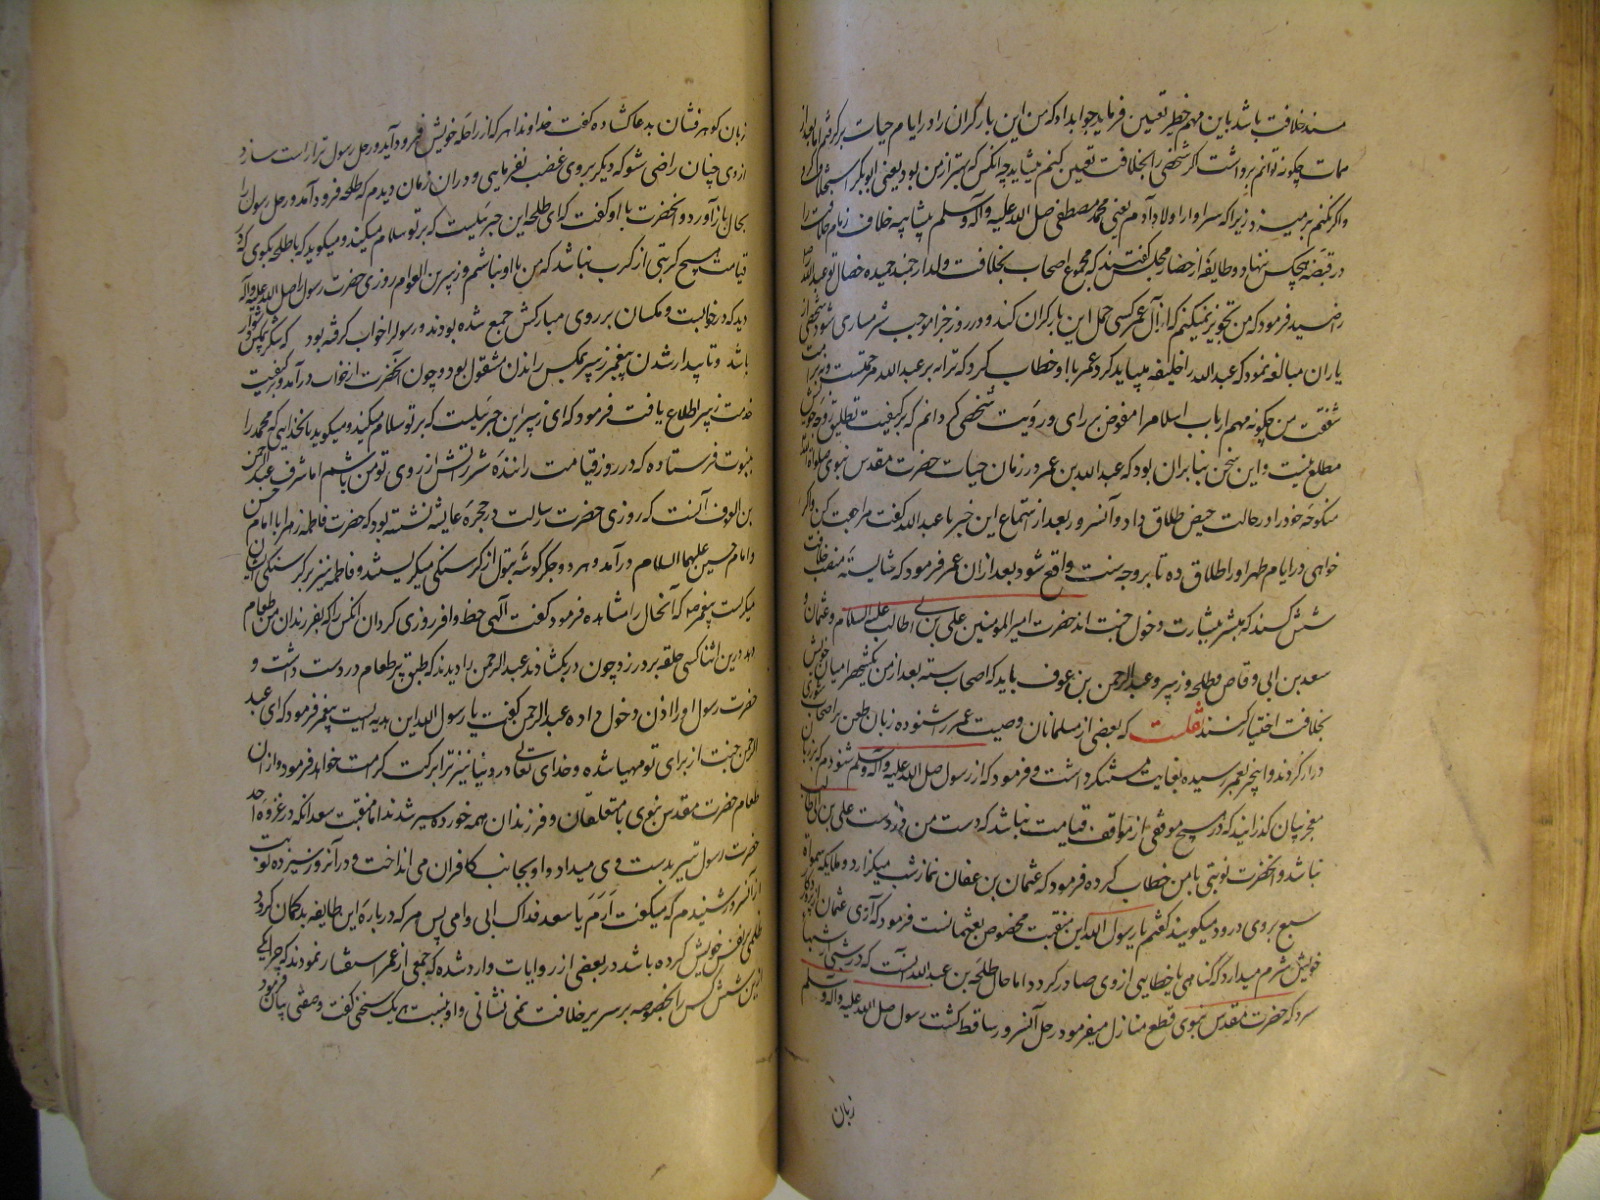 مسند خلافت باشد باین مهم خطیر تعیین فرماید جوابداد که من این بار گران را در ایام حیات برگرفتم اما بعد از
ممات چگونه توانم برداشت اگر شخصی را بخلافت تعیین کنم میشاید چه آنکس که بهتر از من بود یعنی ابوبکر استخلاف کرد
واگر نکنم بر میسزد زیرا که سزاوار اولاد آدم یعنی محمد مصطفی صلی الله علیه وآله وسلم بیشایبه خلاف زمام خلافت را
در قبضه هیچکس ننهاد و طایفه از حضار مجلس گفتند که مجموع اصحاب بخلافت ولد ارجمند حمیده خصال تو عبدالله
راضیند فرمود که من تجویز نمیکنم که از آل عمر کسی حمل این بار گران کند و در روز جزا موجب شرمساری شود شخصی از
یاران مبالغه نمود که عبدالله را خلیفه میباید کرد عمر با او خطاب کرد که ترا نه بر عبدالله مرحمتست و نه بر امت
شفقت من چگونه مهم ارباب اسلام را مفوض برای و رویت شخصی گردانم که بر کیفیت تطلیق زوجه خویش
مطلع نیست واین سخن بنابران بود که عبدالله بن عمر در زمان حیات حضرت مقدس نبوی صلوات الله
منکوحه خود را در حالت حیض طلاق داد وآنسرور بعد از استماع این خبر با عبدالله گفت مراجعت کن واگر
خواهی در ایام طهر اورا طلاق ده تا بر وجه سنت واقع شود بعد ازان عمر فرمود که شایسته منصب خلافت
شش کسند که مبشر ببشارت دخول جنت اند حضرت امیرالمومنین علی بن ابی طالب علیه السلام وعثمان و
سعد بن ابی وقاص وطلحه وزبیر وعبدالرحمن بن عوف باید که اصحاب سته بعد از من یکشخص را میان خویش
بخلافت اختیار کنند نقلست که بعضی از مسلمانان وصیت عمر را شنوده زبان طعن بر اصحاب شوری
دراز کردند واینخبر بعمر رسیده بغایت مستنکر داشت و فرمود که از رسول صلی الله علیه وآله وسلم شنودم که بزبان
معجز بیان گذرانید که در هیچ موقفی از مواقف قیامت نباشد که دست من در دست علی بن ابی طالب
نباشد وآنحضرت نوبتی با من خطاب کرده فرمود که عثمان بن عفان نماز شب میگزارد وملایکه سموات
سبع بروی درود میگویند گفتم یا رسول الله این منقبت مخصوص بعثمانست فرمود که آری عثمان از پروردگار
خویش شرم میدارد که گناهی یا خطایی از وی صادر گردد اما حال طلحه بن عبدالله آنست که در شبی از شبها
سرد که حضرت مقدس نبوی قطع منازل میفرمود رحل آنسرور ساقط گشت رسول صلی الله علیه وآله وسلم
زبان
زبان گوهر فشان بدعا کشاده گفت خداوندا هر که از راحله خویش فرود آید ورحل رسول ترا راست سازد
ازوی چنان راضی شو که دیگر بروی غضب نفرمایی و دران زمان دیدم که طلحه فرود آمد ورحل رسول را
بحال باز آورد وآنحضرت با او گفت که ای طلحه این جبرئیلست که بر تو سلام میکند ومیگوید که با طلحه بگوی که در
قیامت هیچ کربتی از کرب نباشد که من با او نباشم وزبیر بن العوام روزی حضرت رسول را صلی الله علیه وآله
دید که در خوابست ومگسان بر روی مبارکش جمع شده بودند ورسول را خواب گرفته بود
باشد وتا بیدار شدن پیغمبر زبیر بمگس راندن مشغول بود وچون آنحضرت از خواب درآمد وبر کیفیت
خدمت زبیر اطلاع یافت فرمود که ای زبیر این جبرئیلست که بر تو سلام میکند ومیگوید بآنخدایی که محمد را
بنبوت فرستاده که در روز قیامت راننده شرر آتش از روی تو من باشم اما شرف عبدالرحمن
بن العوف آنست که روزی حضرت رسالت در حجره عایشه نشسته بود که حضرت فاطمه زهرا با امام حسن
وامام حسین علیهما السلام درآمد وهر دو جگرگوشه بتول از گرسنگی میگریستند وفاطمه نیز بر گرسنگی ایشان
میگریست پیغمبر که آنحال را مشاهده فرمود گفت الهی حظ وافر روزی گردان آنکس را که بفرزندان من طعام
دهد درین اثنا کسی حلقه بر در زد چون در بکشادند عبدالرحمن را دیدند که طبق پر طعام در دست داشت و
حضرت رسول اورا اذن دخول داده عبدالرحمن گفت یا رسول الله این هدیه ایست پیغمبر فرمود که ای عبد
الرحمن جنت از برای تو مهیا شده وخدای تعالی در دنیا نیز ترا برکت کرامت خواهد فرمود وازان
طعام حضرت مقدس نبوی با متعلقان وفرزندان همه خورده سیر شدند اما منقبت سعد آنکه در غزوه احد
حضرت رسول تیر بدست وی میداد واو بجانب کافران می انداخت ودر آنروز سیزده نوبت
از آنسرور شنیدم که میگفت ارم یا سعد فداک ابی وامی پس هر که درباره این طایفه بدگمان گردد
ظلمی بر نفس خویش کرده باشد در بعضی از روایات وارد شده که جمعی از عمر استفسار نمودند که چرا یکی
ازین شش کس را بخصوصه بر سریر خلافت نمی نشانی واو نسبت بهر یک سخنی گفت وصفتی بیان فرمود